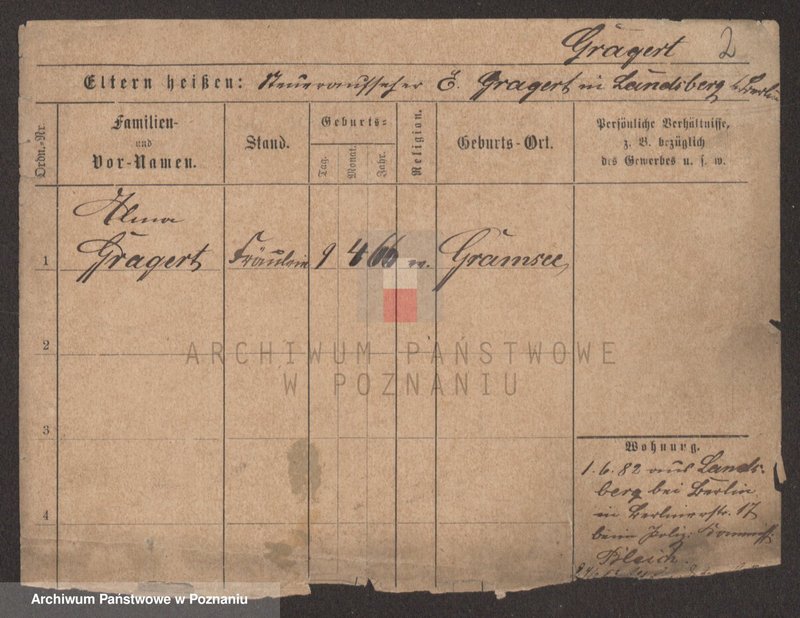 Gragert 2
Eltern heißen: Steueraufseher E. Gragert in Landsberg b. Berlin
Ordn.-Nr.
Familien-
und
Vor-Namen.
Stand.
Geburts-
Tag.
Monat.
Jahr.
Religion.
Geburts-Ort.
Persönliche Verhältnisse,
z. B. bezüglich
des Gewerbes u. s. w.
Alma
1 Gragert Fräulein 9 4 66 ev. Gramsee
2
ARCHIWUM PAŃSTWOWE
W POZNANIU
3
Wohnung.
1.6.82 aus Lands-
berg bei Berlin
in Berlinerstr. 17
4
beim Poliz. Kommiss.
Blasch
Archiwum Państwowe w Poznaniu